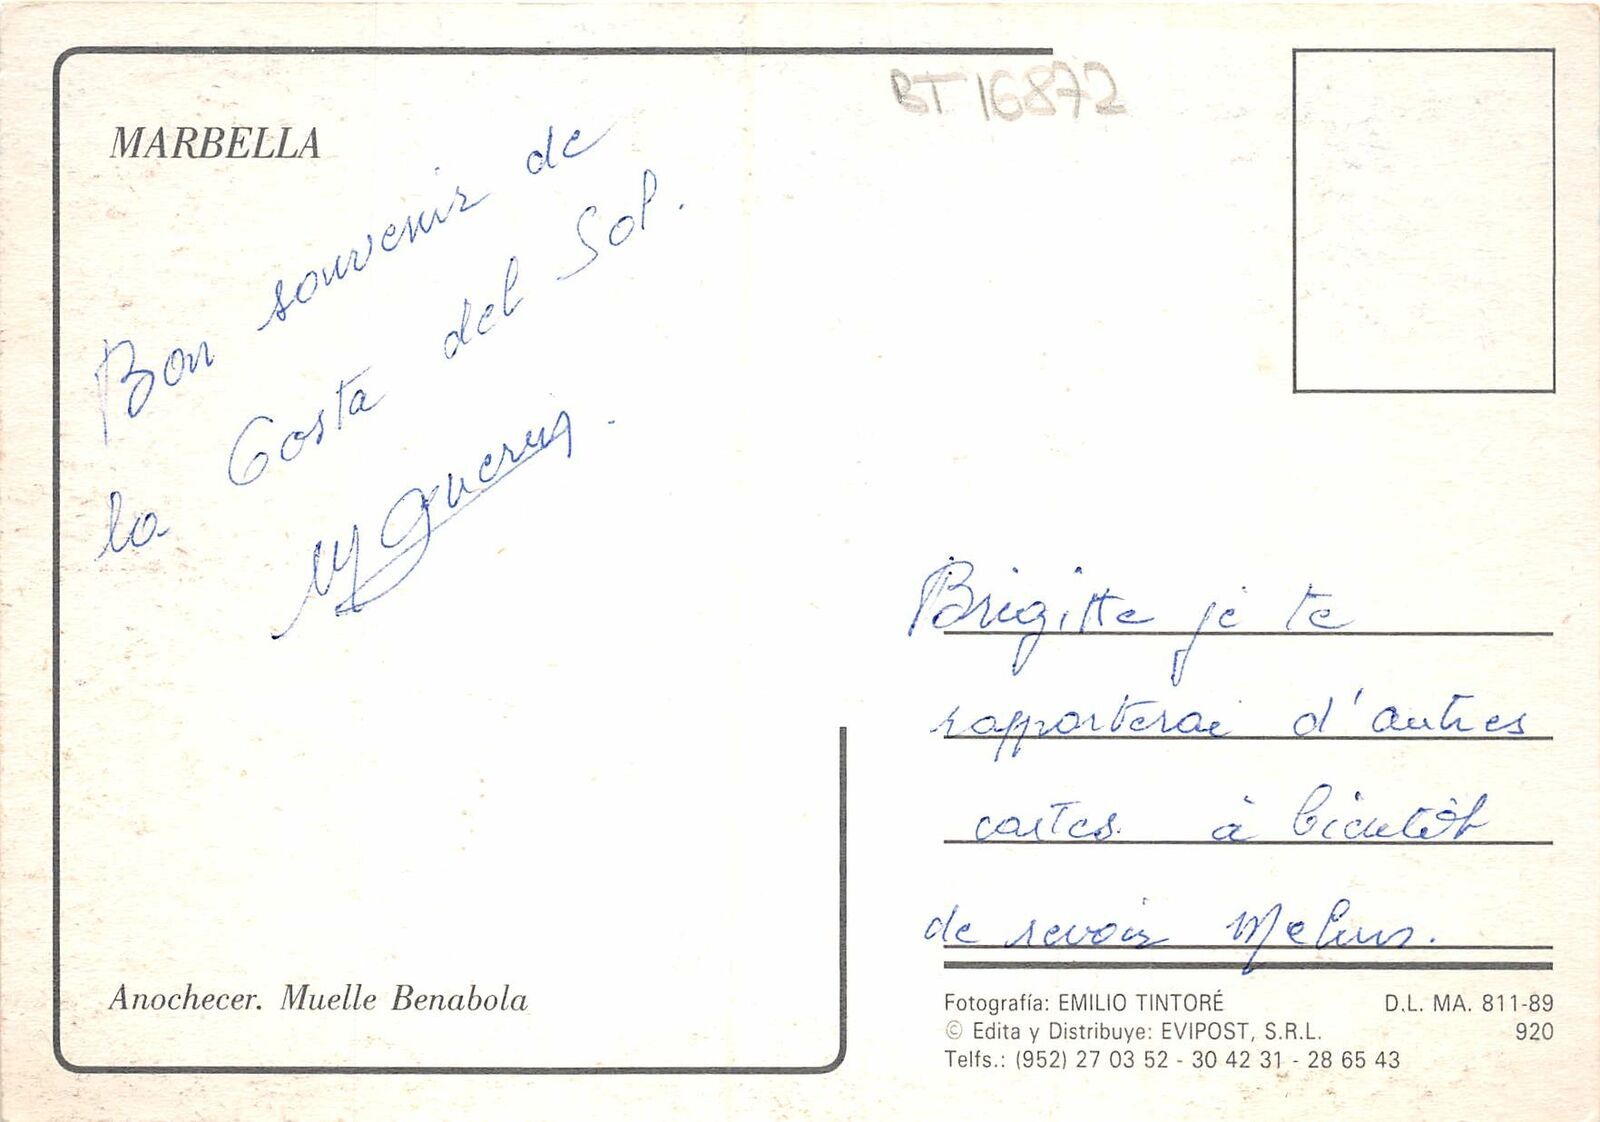 BT 16872
MARBELLA
Bon souvenir de
la Costa del Sol.
Brigitte je te
rapporterai d'autres
cartes. à bientôt
de revoir
Anochecer. Muelle Benabola
Fotografía: EMILIO TINTORÉ D.L. MA. 811-89
© Edita y Distribuye: EVIPOST, S.R.L. 920
Telfs.: (952) 27 03 52 - 30 42 31 - 28 65 43